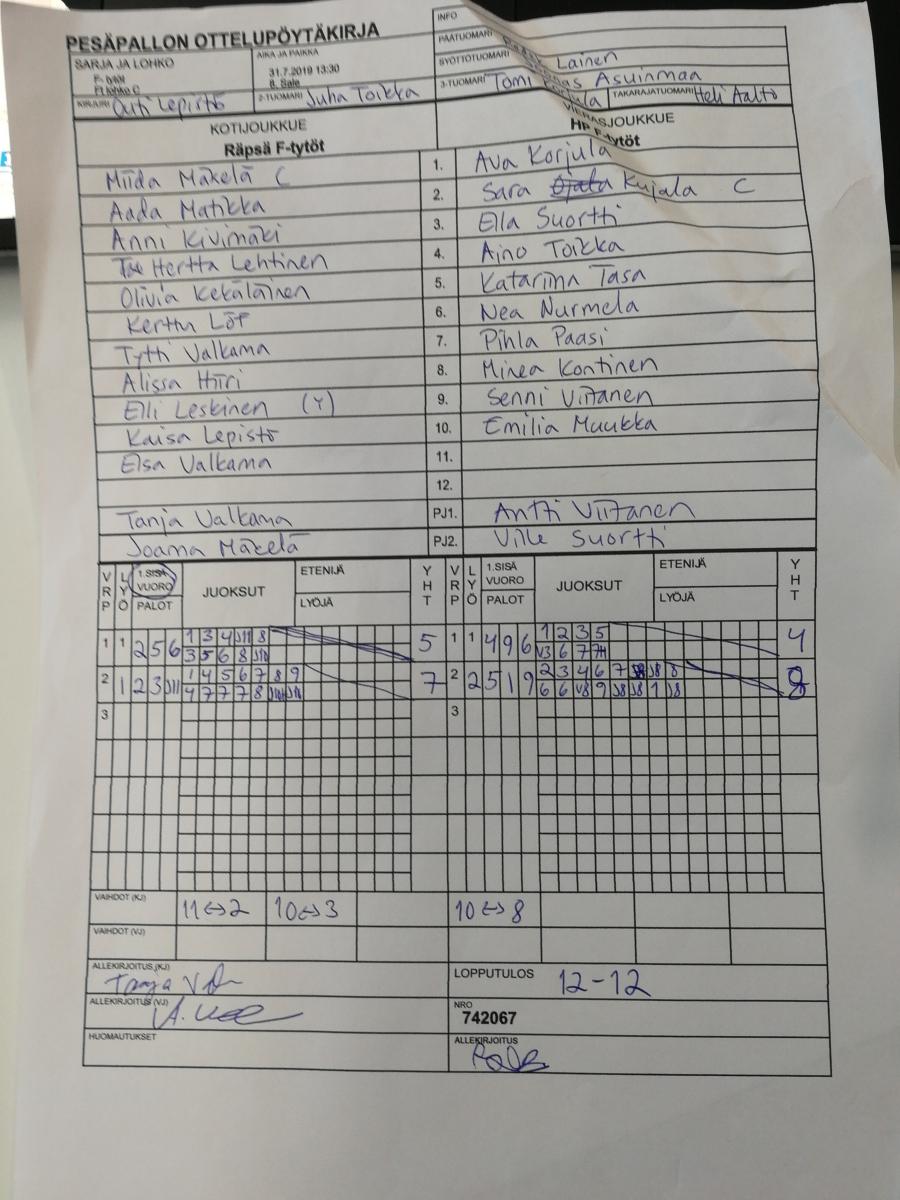 PESÄPALLON OTTELUPÖYTÄKIRJA
INFO
PÄÄTUOMARI
SARJA JA LOHKO
F- tytöt
F1 lohko C
AIKA JA PAIKKA
31.7.2019 13:30
8. Sale
SYÖTTÖTUOMARI Lainen
3-TUOMARI Tomi Asuinmaa
KIRJURI Outi Lepistö
2-TUOMARI Juha Toikka
TAKARAJATUOMARI Heli Aalto
KOTIJOUKKUE
Räpsä F-tytöt
VIERASJOUKKUE
HP F-tytöt
Miida Mäkelä C 1. Ava Korjula
Aada Matikka 2. Sara Kujala C
Anni Kivimäki 3. Ella Suortti
Hertta Lehtinen 4. Aino Toikka
Olivia Kekäläinen 5. Katariina Tasa
Kerttu Löf 6. Nea Nurmela
Tytti Valkama 7. Pihla Paasi
Alissa Hiiri 8. Minea Kontinen
Elli Leskinen (Y) 9. Senni Viitanen
Kaisa Lepistö 10. Emilia Muukka
Elsa Valkama 11.
12.
Tanja Valkama PJ1. Antti Viitanen
Joanna Mäkelä PJ2. Ville Suortti
VRP LYÖ 1.SISÄ VUORO PALOT JUOKSUT ETENIJÄ LYÖJÄ YHT VRP LYÖ 1.SISÄ VUORO PALOT JUOKSUT ETENIJÄ LYÖJÄ YHT
1 1 2 5 6 1 3 4 J11 8 5 1 1 4 9 6 1 2 3 5 4
3 5 6 8 J10 V3 6 7 7H
2 1 2 3 J11 1 4 5 6 7 8 9 7 2 2 5 1 9 2 3 4 6 7 J8 8 8
4 7 7 7 8 6 6 V8 9 J8 J8 1 J8
3 3
VAIHDOT (KJ) 11<->2 10<->3 10<->8
VAIHDOT (VJ)
ALLEKIRJOITUS (KJ)
LOPPUTULOS 12-12
ALLEKIRJOITUS (VJ)
NRO
742067
HUOMAUTUKSET
ALLEKIRJOITUS